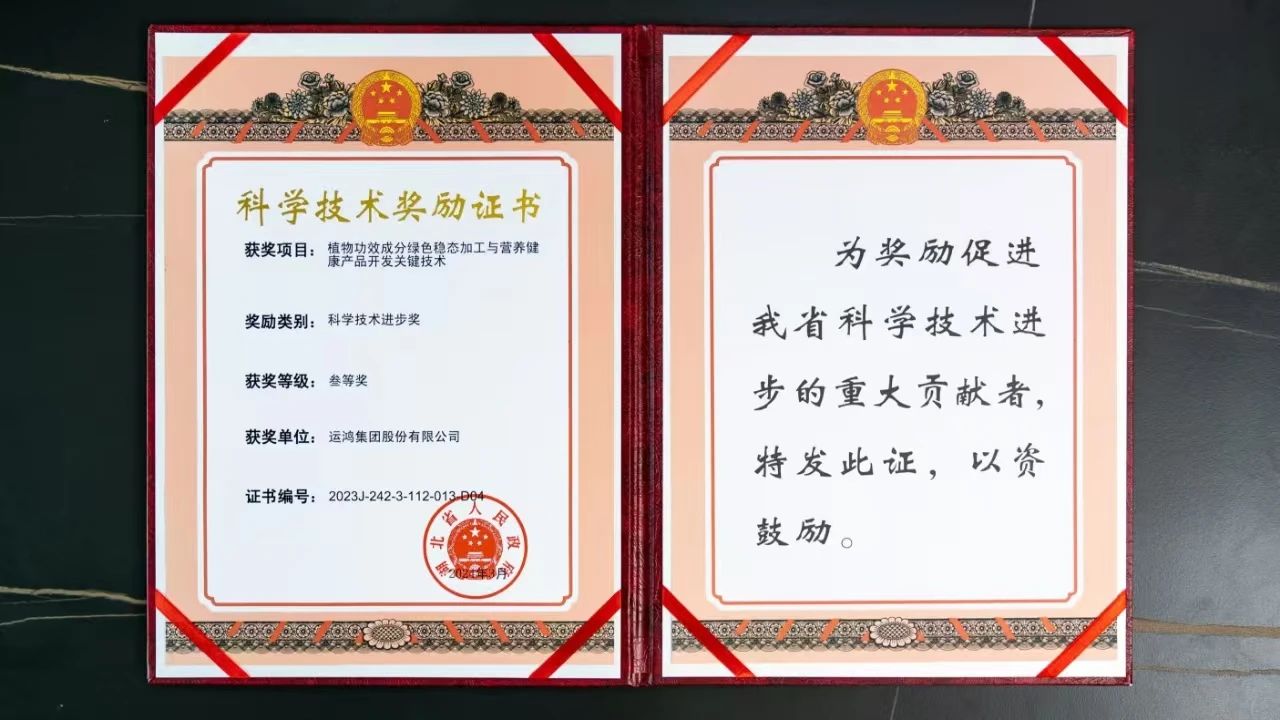 科学技术奖励证书
获奖项目：植物功效成分绿色稳态加工与营养健
康产品开发关键技术
奖励类别：科学技术进步奖
获奖等级：叁等奖
获奖单位：运鸿集团股份有限公司
证书编号：2023J-242-3-112-013-D04
湖北省人民政府
2024年3月
为奖励促进
我省科学技术进
步的重大贡献者，
特发此证，以资
鼓励。